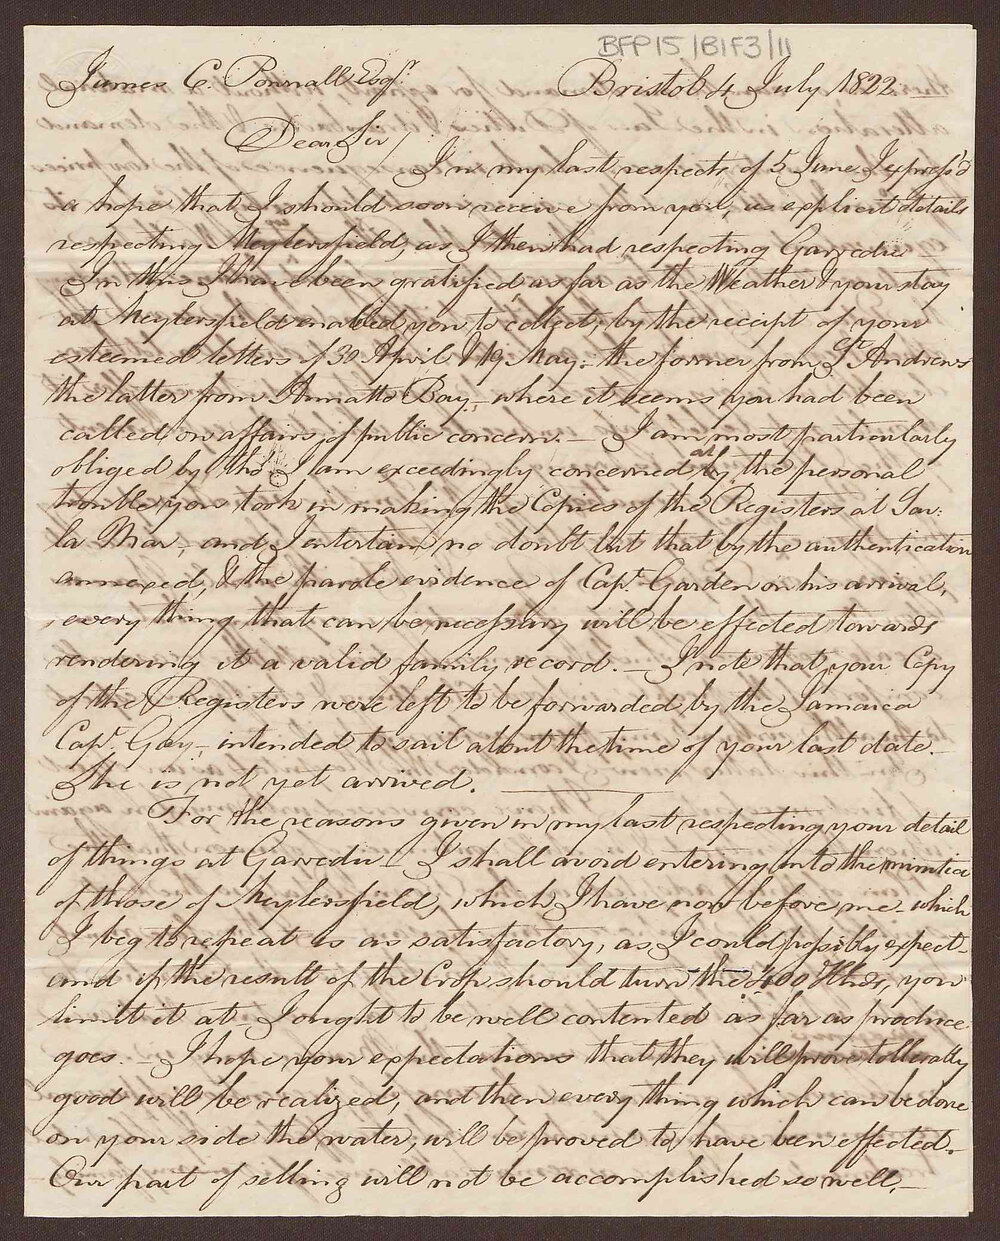 BFP15/B1F3/11
James C. Pownall Esqr. Bristol 4 July 1822
Dear Sir/
In my last respects of 5 June I express'd
a hope that I should soon receive from you, as explicit details
respecting Meylersfield, as I then had respecting Garredu
In this I have been gratified, as far as the Weather & your stay
at Meylersfield enabled you to collect, by the receipt of your
esteemed letters of 30 April & 19 May: the former from St Andrews
the latter from Annatto Bay, where it seems you had been
called, on affairs of public concern. — I am most particularly
obliged by tho' I am exceedingly concerned at the personal
trouble you took in making the Copies of the Registers at Sav:
la Mar, and I entertain no doubt but that by the authentication
annexed, & the parole evidence of Capt. Garden on his arrival,
every thing that can be necessary will be effected towards
rendering it a valid family record. — I note that your Copy
of the Registers were left to be forwarded by the Jamaica
Capt. Gay, intended to sail about the time of your last date.
She is not yet arrived.
For the reasons given in my last respecting your detail
of things at Garredu I shall avoid entering into the minutiæ
of those of Meylersfield, which I have now before me - which
I beg to repeat is as satisfactory, as I could possibly expect -
and if the result of the Crop should turn the 400 Hhds, you
limit it at I ought to be well contented as far as produce
goes. I hope your expectations that they will prove tollerably
good will be realized, and then every thing which can be done
on your side the water, will be proved to have been effected.
Our part of selling will not be accomplished so well, —